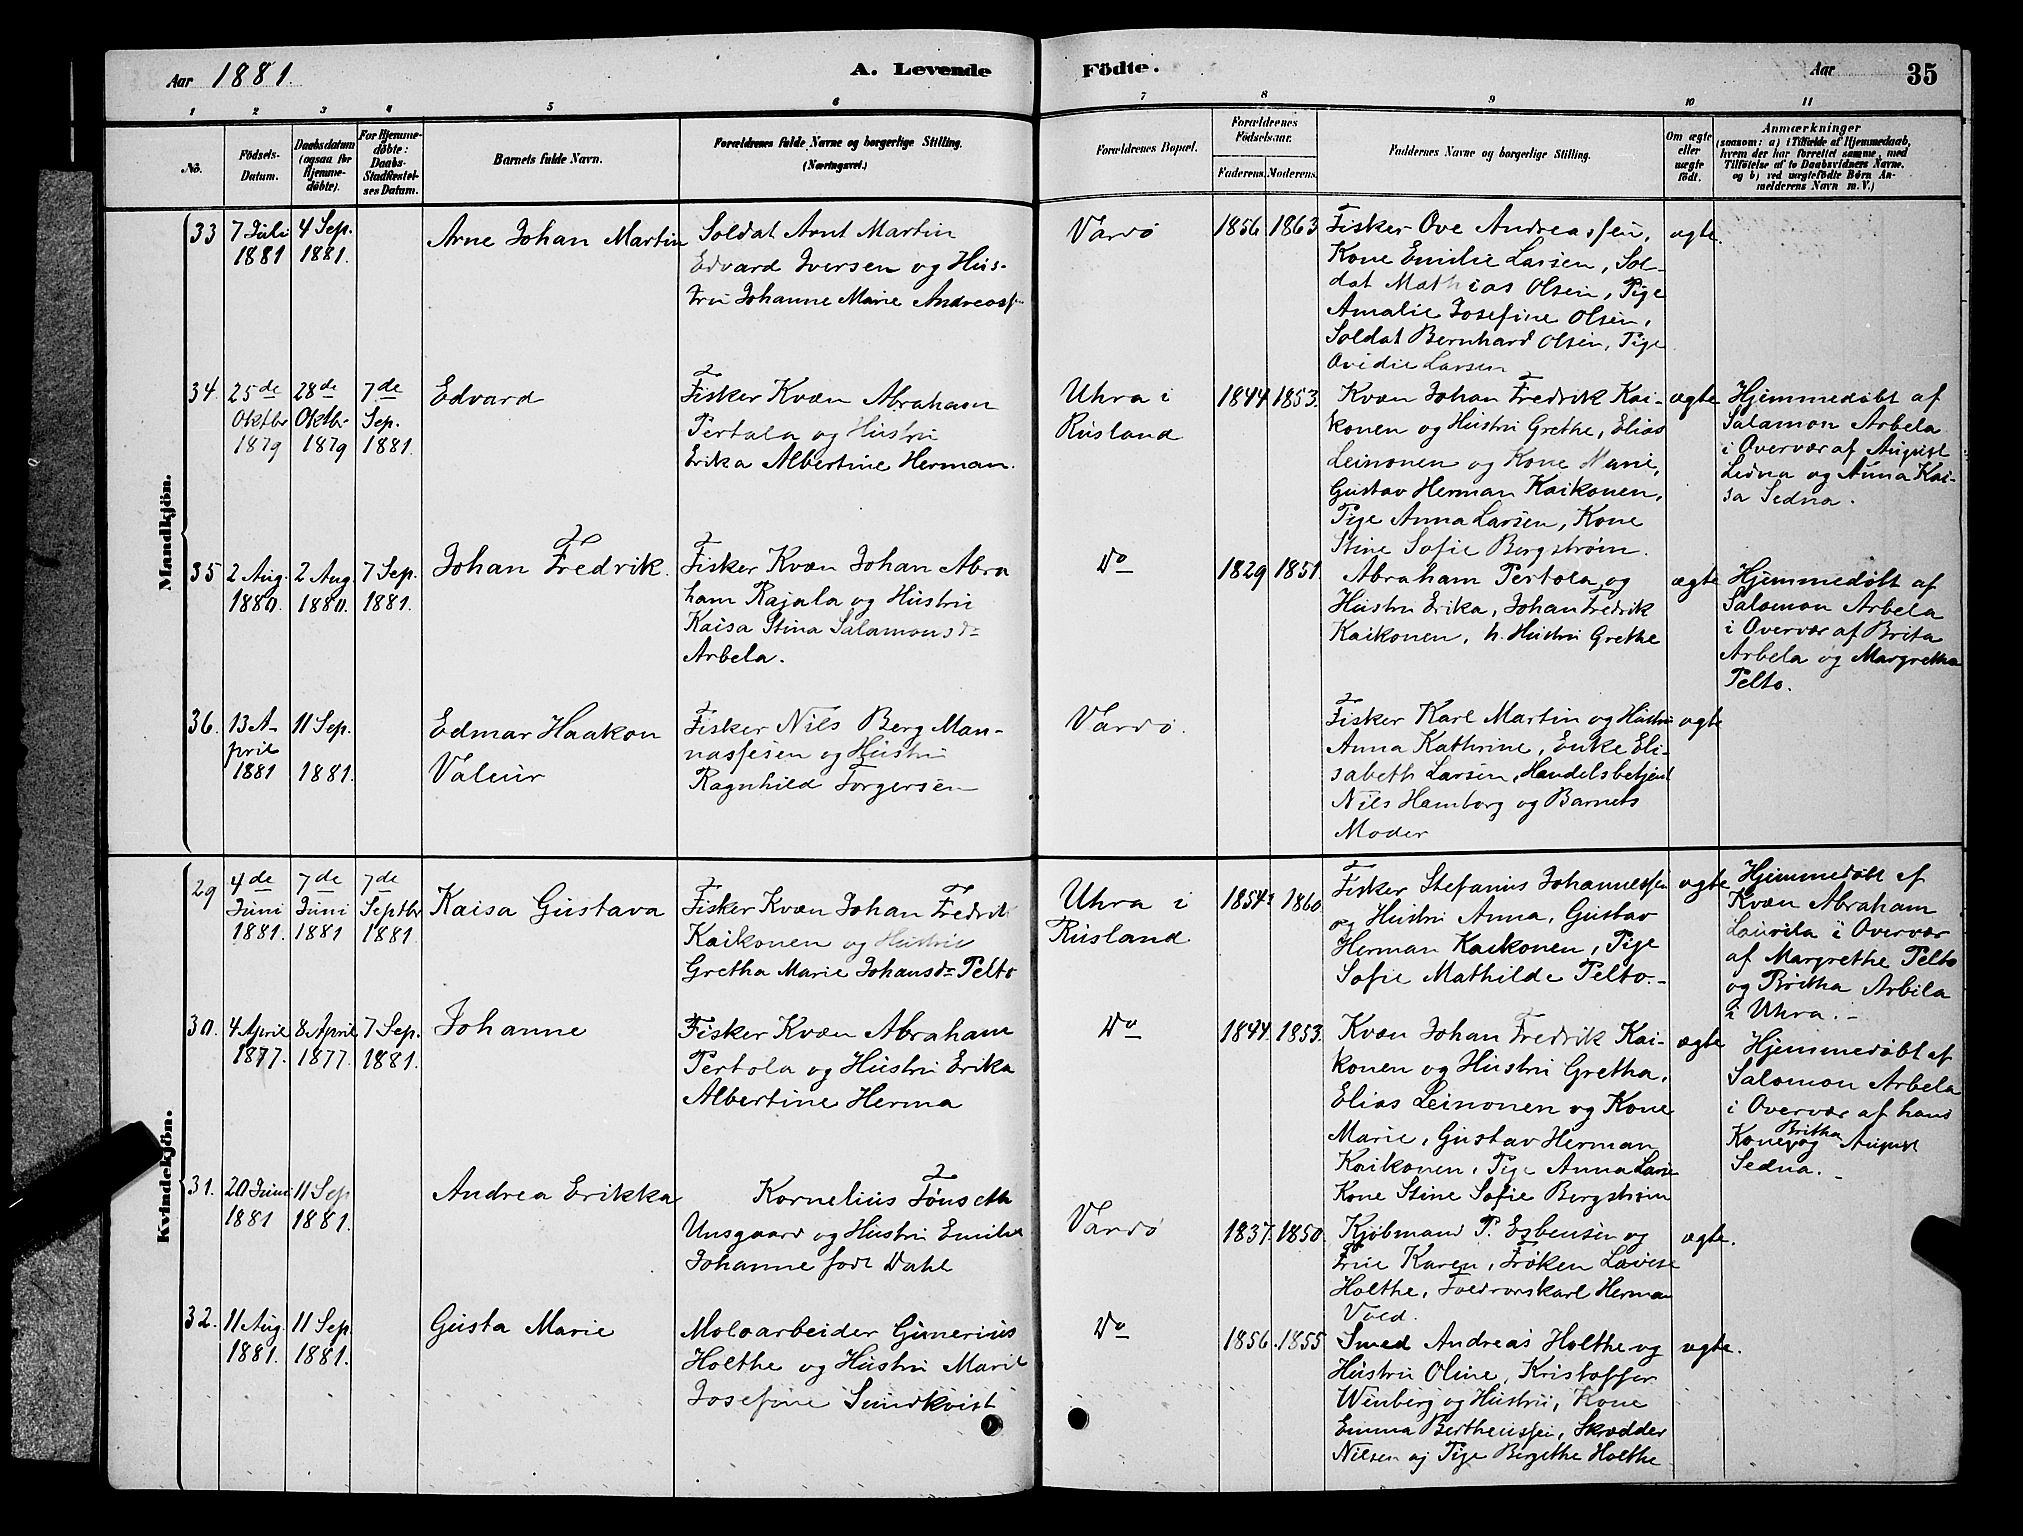 Aar 1881.
A. Levende
Födte.
Aar
35
1 2 3 4 5 6
7 8 9 10 11
No.
Födsels-
Datum.
Daabsdatum
(ogsaa for
Hjemme-
döbte).
For Hjemme-
döbte:
Daabs-
Stadfæstel-
ses Datum.
Barnets fulde Navn.
Forældrenes fulde Navne og borgerlige Stilling.
(Næringsvei.)
Forældrenes Bopæl.
Forældrenes
Födselsaar.
Faderens. Moderens.
Faddernes Navne og borgerlige Stilling.
Om ægte
eller
uægte
födt.
Anmærkninger
(saasom: a) i Tilfælde af Hjemmedaab,
hvem der har forrettet samme, med
Tilföielse af to Daabsvidners Navne,
og b) ved uægtefödte Börn An-
melderens Navn m. V.)
Mandkjön.
33
7 Juli
1881
4 Sep.
1881.
Arne Johan Martin
Soldat Arnt Martin
Edvard Iversen og Hus-
tru Johanne Marie Andreass
Vardø
1856. 1863
Fisker Ove Andreassen,
Kone Emilie Larsen, Sol-
dat Mathias Olsen, Pige
Amalie Josefine Olsen,
Soldat Bernhard Olsen, Pige
Ovidie Larsen
ægte.
34
25de
Oktbr
1879
28de
Oktbr
1879
7de
Sep.
1881.
Edvard
Fisker Kvæn Abraham
Pertola og Hustru
Erika Albertine Herman.
Uhra i
Rusland
1844. 1853.
Kvæn Johan Fredrik Kai-
konen og Hustru Grethe, Elias
Leinonen og Kone Marie,
Gustav Herman Kaikonen,
Pige Anna Larsen, Kone
Stine Sofie Bergstrøm.
ægte
Hjemmedøbt af
Salamon Arbela
i Overvær af August
Sedna og Anna Kai-
sa Sedna.
35
2 Aug.
1880.
2 Aug
1880.
7 Sep.
1881.
Johan Fredrik.
Fisker Kvæn Johan Abra
ham Rajala og Hustru
Kaisa Stina Salamonsdr
Arbela.
Do
1829. 1851.
Abraham Pertola og
Hustru Erika, Johan Fredrik
Kaikonen, h. Hustru Grethe
ægte
Hjemmedøbt af
Salomon Arbela
i Overvær af Brita
Arbela og Margretha
Pelto.
36.
13 A-
pril
1881
11 Sep.
1881.
Edmar Haakon
Valeur
Fisker Nils Berg Man-
nassesen og Hustru
Ragnhild Torgersen
Vardø.
Fisker Karl Martin og Hustru
Anna Kathrine, Enke Eli-
sabeth Larsen, Handelsbetjent
Nils Hamborg og Barnets
Moder
ægte
Kvindekjön.
29
4de
Juni
1881.
7de
Juni
1881
7de
Septbr
1881.
Kaisa Gustava
Fisker Kvæn Johan Fredrik
Kaikonen og Hustru
Gretha Marie Johansdr Pelto
Uhra i
Rusland.
1854. 1860
Fisker Stefanus Johannessen
og Hustru Anna, Gustav
Herman Kaikonen, Pige
Sofie Mathilde Pelto.-
ægte
Hjemmedøbt af
Kvæn Abraham
Laurila i Overvær
af Margrethe Pelto
og Britha Arbila
i Uhra.-
30.
4 April
1877.
8 April
1877.
7 Sep.
1881.
Johanne
Fisker Kvæn Abraham
Pertola og Hustru Erika
Albertine Herma
Do
1844. 1853.
Kvæn Johan Fredrik Kai-
konen og Hustru Gretha,
Elias Leinonen og Kone
Marie, Gustav Herman
Kaikonen, Pige Anna Larse
Kone Stine Sofie Bergstrøm
ægte
Hjemmedøbt af
Salomon Arbela
i Overvær af hans
Kone Britha og August
Sedna.-
31.
20 Juni
1881
11 Sep
1881.
Andrea Erikka
Kornelius Tønseth
Unsgaard og Hustru Emilie
Johanne født Dahl
Vardø
1837. 1850.
Kjøbmand P. Esbensen og
Frue Karen, Frøken Lovise
Holthe, Foedvorskarl Herman
Vold.
ægte.
32.
11 Aug.
1881.
11 Sep.
1881.
Gusta Marie
Moloarbeider Gunerius
Holthe og Hustru Marie
Josefine Sundkvist
Do
1856. 1855
Smed Andreas Holthe og
Hustru Oline, Kristoffer
Wenberg og Hustru, Kone
Emma Bertheussen, Skrædder
Nilsen og Pige Bergithe Holthe
ægte.